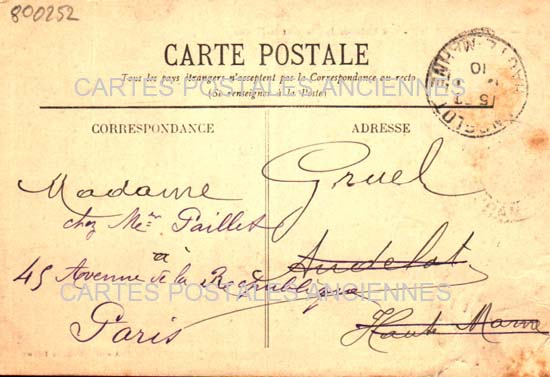 800252
CARTE POSTALE
Tous les pays étrangers n'acceptent pas la Correspondance au recto
(Se renseigner à la Poste)
CARTES POSTALES ANCIENNES
CORRESPONDANCE
ADRESSE
ANDELOT
HTE MARNE
10
Madame Gruel
chez Me Paillet
Andelot
45 Avenue de la République
CARTES POSTALES ANCIENNES
Paris
Haute Marne